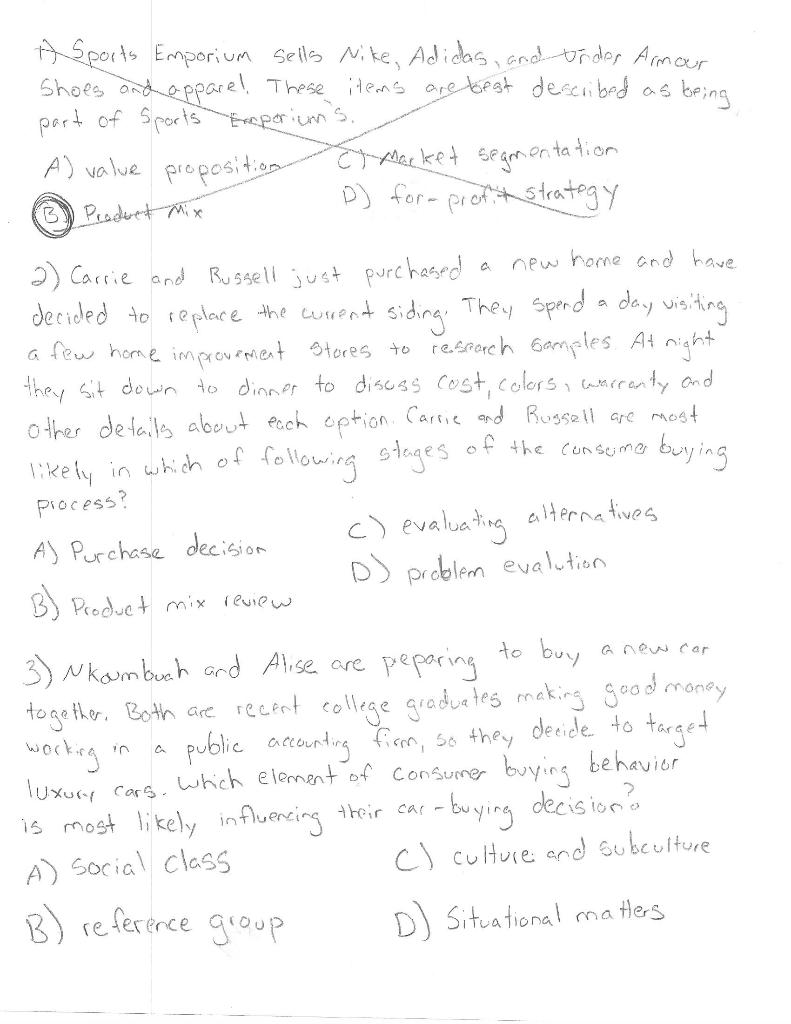 1) Sports Emporium sells Nike, Adidas, and Under Armour
Shoes and apparel. These items are best described as being
part of Sports Emporium's.
A) value proposition
C) Market segmentation
B) Product Mix
D) for-profit strategy
2) Carrie and Russell just purchased a new home and have
decided to replace the current siding. They spend a day visiting
a few home improvement stores to research samples. At night
they sit down to dinner to discuss cost, colors, warranty and
other details about each option. Carrie and Russell are most
likely in which of following stages of the consumer buying
process?
A) Purchase decision
C) evaluating alternatives
B) Product mix review
D) problem evalution
3) Nkoumbuah and Alise are peparing to buy a new car
together. Both are recent college graduates making good money
working in a public accounting firm, so they decide to target
luxury cars. Which element of consumer buying behavior
is most likely influencing their car-buying decision?
A) Social Class
C) culture and subculture
B) reference group
D) Situational matters